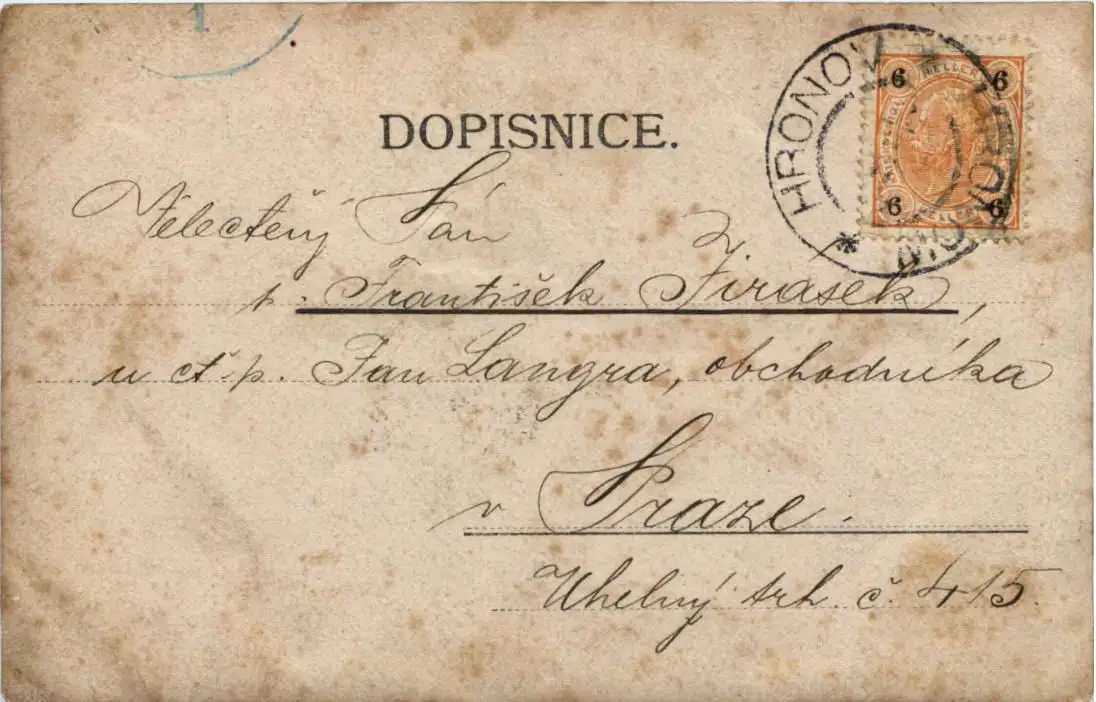 1
HRONOV
6 HELLER 6
6 HELLER 6
HRONOV
DOPISNICE.
Velectěný Pán
p. František Jirásek,
u ct. p. Jan Langra, obchodníka
v Praze.
Uhelný trh. č. 415